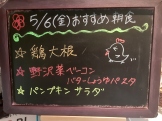 5/6(金)おすすめ
☆ 鶏大根
☆ 野沢菜ベーコン
バターしょうゆパスタ
☆ パンプキンサラダ